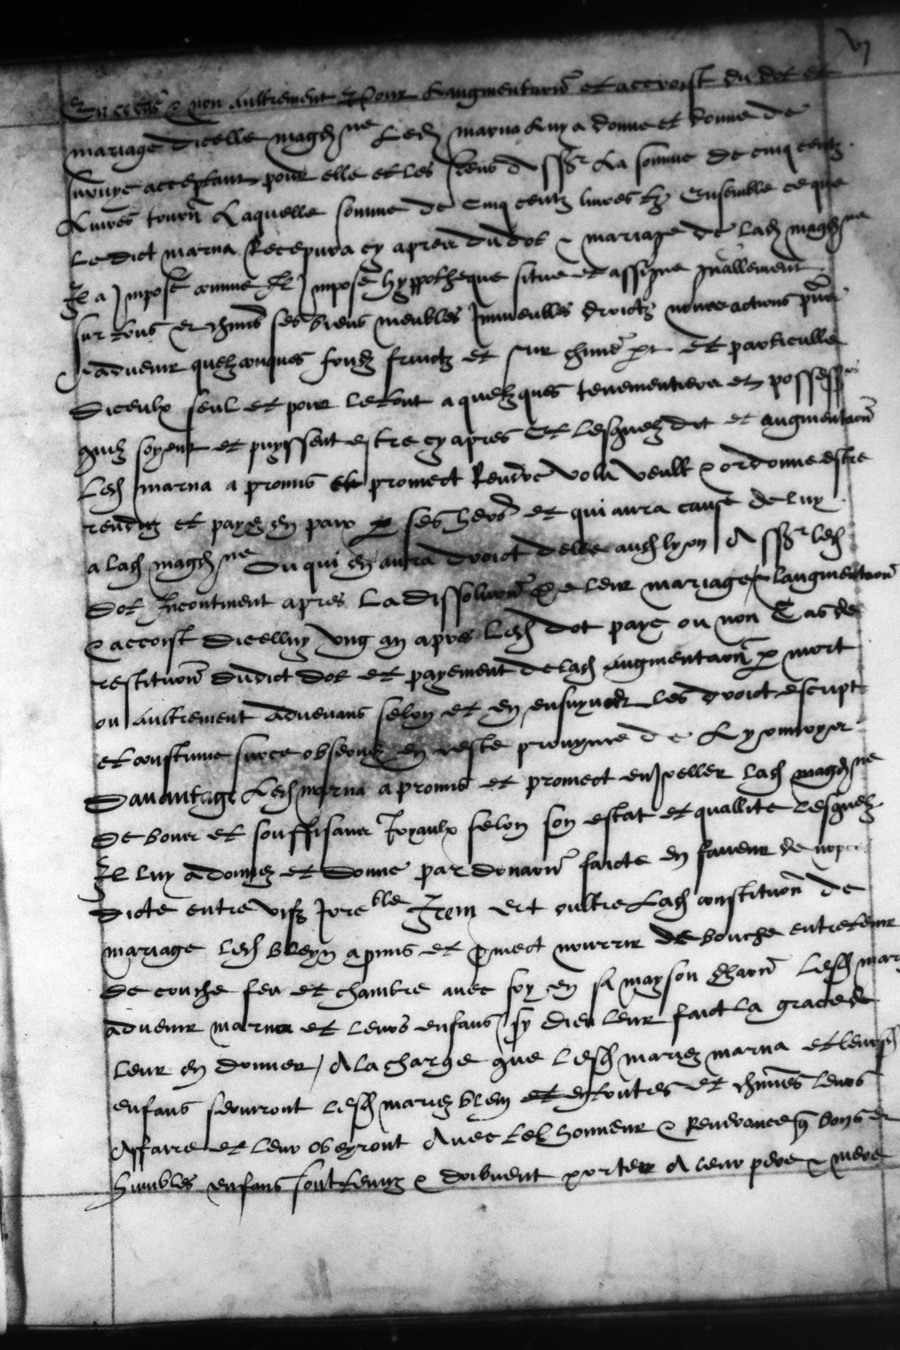 vj
non aultrement Et pour laugmentation et accroist du dot et
mariage dicelle magdne Led marna luy a donne et donne de
survye acceptant pour elle et les siens d ssr La somme de cinq centz
Livres tourn Laquelle somme de cinq centz livres tz Ensemble ce que
Le dict marna Recepvra cy apres dud dot & mariage de lad magdne
Il a Impose comme Il Impose hyppotheque situe et assigne
sur tous et chms ses biens meubles Immeubles droictz noms actions pns
& advenir quelzconques fondz fruictz et sur chune pt et particulle
Diceulx seul et pour le tout a quelzques tenementiers et possess
quilz soyent et puyssent estre cy apres Et lesquelz dot et augmentaon
Led marna a promis et promect Rendre volu veult & ordonne estre
renduz et payez en paix p ses hers et qui aura cause de luy
a lad magdne Ou qui en aura droict delle aud lyon A ssr led
Dot Incontinent apres La dissolution de leur mariage & laugmentation
& accoist Dicelluy ung an apres Led dot paye ou non Cas de
restitution dudict dot et payement de lad augmentaon p mort
ou aultrement advenans selon et en ensuyvant les droict escript
et coustume sur ce observez en ceste provynce de Lyonnoys
Davantage Led marna a promis et promect enjoeller lad magdne
De bons et souffisans Joyaulx selon son estat et quallite Lesquelz
Il luy a donnez et donne par donaon faicte en faveur de nopces
dicte entre vifz Irreble Item est oultre Lad constituon de
mariage led bleyn a pmis et pmect nourrir de bouche entretenir
De couche feu et chambre avec soy en sa mayson Lesd mariez
advenir marna et leurs enfans sy dieu leur faict la grace de
leur en donner / A la charge que lesd mariez marna et leursd
enfans serviront lesd mariez bleyn et en toutes et chunes leurs
Affaire et leur obeyront Avec tel honneur & Reverance q bons et
humbles enfans sont tenuz & doibvent porter A leur pere & mere